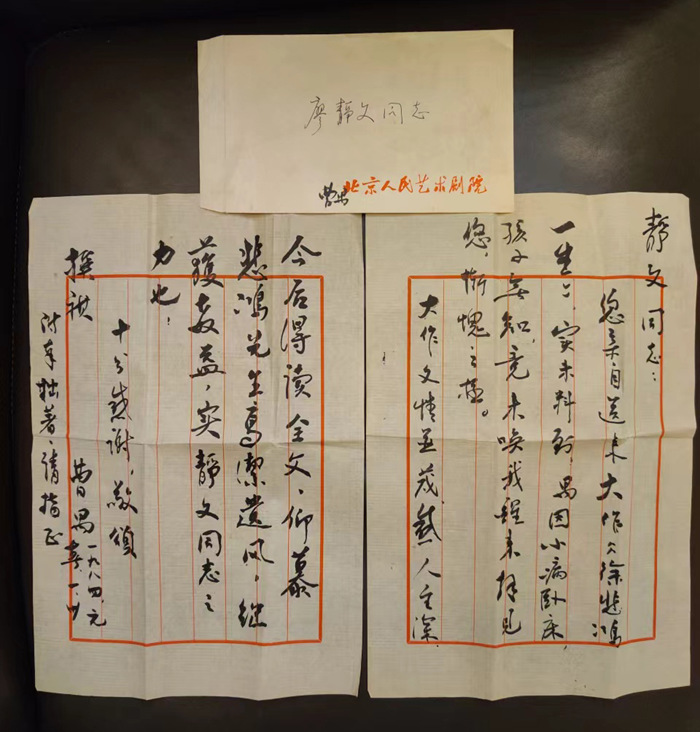 廖静文同志
曹禺 北京人民艺术剧院
静文同志：
您亲自送来大作《徐悲鸿
一生》，实未料到，禺因小病卧床，
孩子无知，竟未唤我醒来拜见
您，惭愧之极。
大作文情并茂，感人至深，
今后得读全文，仰慕
悲鸿先生高洁遗风，
获教益，实静文同志之
力也！
十分感谢，敬颂
撰祺
曹禺 一九八四、元
附奉拙著，请指正